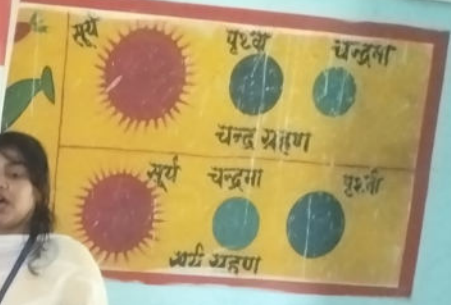 सूर्य पृथ्वी चन्द्रमा
चन्द्र ग्रहण
सूर्य चन्द्रमा पृथ्वी
सूर्य ग्रहण